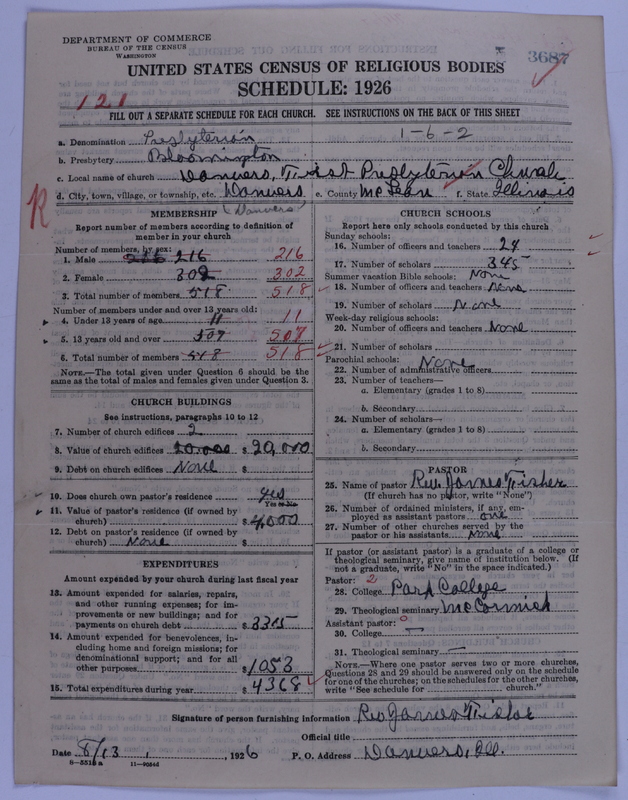 DEPARTMENT OF COMMERCE
BUREAU OF THE CENSUS
WASHINGTON
3687
UNITED STATES CENSUS OF RELIGIOUS BODIES
SCHEDULE: 1926
121
FILL OUT A SEPARATE SCHEDULE FOR EACH CHURCH. SEE INSTRUCTIONS ON THE BACK OF THIS SHEET
1-6-2
a. Denomination Presbyterian
b. Presbytery Bloomington
c. Local name of church Danvers, First Presbyterian Church
d. City, town, village, or township, etc. Danvers e. County McLean f. State Illinois
(Danvers)
R
MEMBERSHIP
Report number of members according to definition of
member in your church
Number of members, by sex:
1. Male 216 216
2. Female 302 302
3. Total number of members 518 518
Number of members under and over 13 years old:
4. Under 13 years of age 11 11
5. 13 years old and over 507 507
6. Total number of members 518 518
NOTE.—The total given under Question 6 should be the
same as the total of males and females given under Question 3.
CHURCH BUILDINGS
See instructions, paragraphs 10 to 12
7. Number of church edifices 2
8. Value of church edifices 20,000 $ 20,000
9. Debt on church edifices None $
10. Does church own pastor's residence yes
Yes or No
11. Value of pastor's residence (if owned by
church) $ 4,000
12. Debt on pastor's residence (if owned by
church) None $
EXPENDITURES
Amount expended by your church during last fiscal year
13. Amount expended for salaries, repairs,
and other running expenses; for im-
provements or new buildings; and for
payments on church debt $ 3315
14. Amount expended for benevolences, in-
cluding home and foreign missions; for
denominational support; and for all
other purposes $ 1053
15. Total expenditures during year $ 4368
CHURCH SCHOOLS
Report here only schools conducted by this church
Sunday schools:
16. Number of officers and teachers 24
17. Number of scholars 345
Summer vacation Bible schools: None
18. Number of officers and teachers None
19. Number of scholars None
Week-day religious schools:
20. Number of officers and teachers None
21. Number of scholars
Parochial schools: None
22. Number of administrative officers
23. Number of teachers—
a. Elementary (grades 1 to 8)
b. Secondary
24. Number of scholars—
a. Elementary (grades 1 to 8)
b. Secondary
PASTOR
25. Name of pastor Rev. James Fisher
(If church has no pastor, write "None")
26. Number of ordained ministers, if any, em-
ployed as assistant pastors one
27. Number of other churches served by the
pastor or his assistants None
If pastor (or assistant pastor) is a graduate of a college or
theological seminary, give name of institution below. (If
not a graduate, write "No" in the space indicated.)
Pastor: 2
28. College Park College
29. Theological seminary McCormick
Assistant pastor: 0
30. College —
31. Theological seminary —
NOTE.—Where one pastor serves two or more churches,
Questions 28 and 29 should be answered only on the schedule
for one of the churches; on the schedules for the other churches,
write "See schedule for church."
Signature of person furnishing information Rev James Fisher
Official title
Date 8/13, 1926 P. O. Address Danvers, Ill.
8-5510a 11-9054d